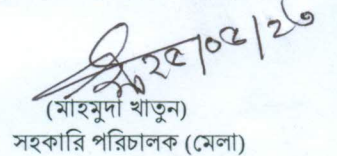 ২৫/০৫/২৬
(মাহমুদা খাতুন)
সহকারি পরিচালক (মেলা)